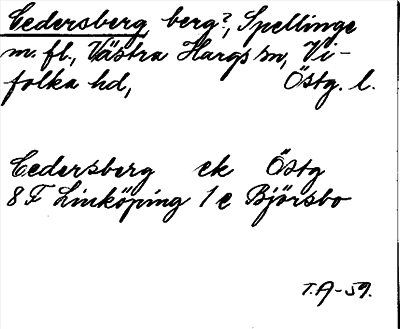 Cedersberg, berg?, Spellinge
m. fl., Västra Hargs sn, Vi-
folka hd, Östg. l.
Cedersberg ek Östg
8F Linköping 1e Björsbo
T.A-59.